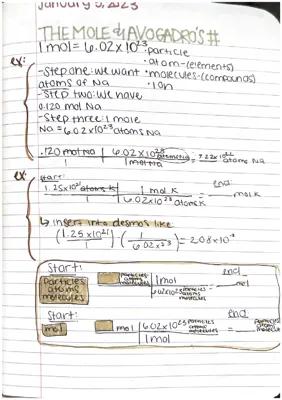 January 5, 2023
THE MOLE & AVOGADRO'S #
1 mol = 6.02 x 10^23 · particle
ex: · atom - (elements)
- Step one: we want · molecules - (compounds)
atoms of Na · Ion
- Step two: we have
0.120 mol Na
- Step three: 1 mole
Na = 6.02 x 10^23 atoms Na
.120 mol Na | 6.02 x 10^23 atoms Na = 7.22 x 10^22 atoms Na
1 | 1 mol Na
ex: start: end:
1.25 x 10^21 atoms K | 1 mol K = ___ mol K
1 | 6.02 x 10^23 atoms K
↳ insert into desmos like
(1.25 x 10^21 / 1) (1 / 6.02 x 10^23) = 2.08 x 10^-3
Start: end
particles atoms molecules | particles atoms molecules | 1 mol = ___ mol
6.02 x 10^23 particles atoms molecules
Start: end:
mol | mol | 6.02 x 10^23 particles atoms molecules = ___ particles atoms molecules
1 mol